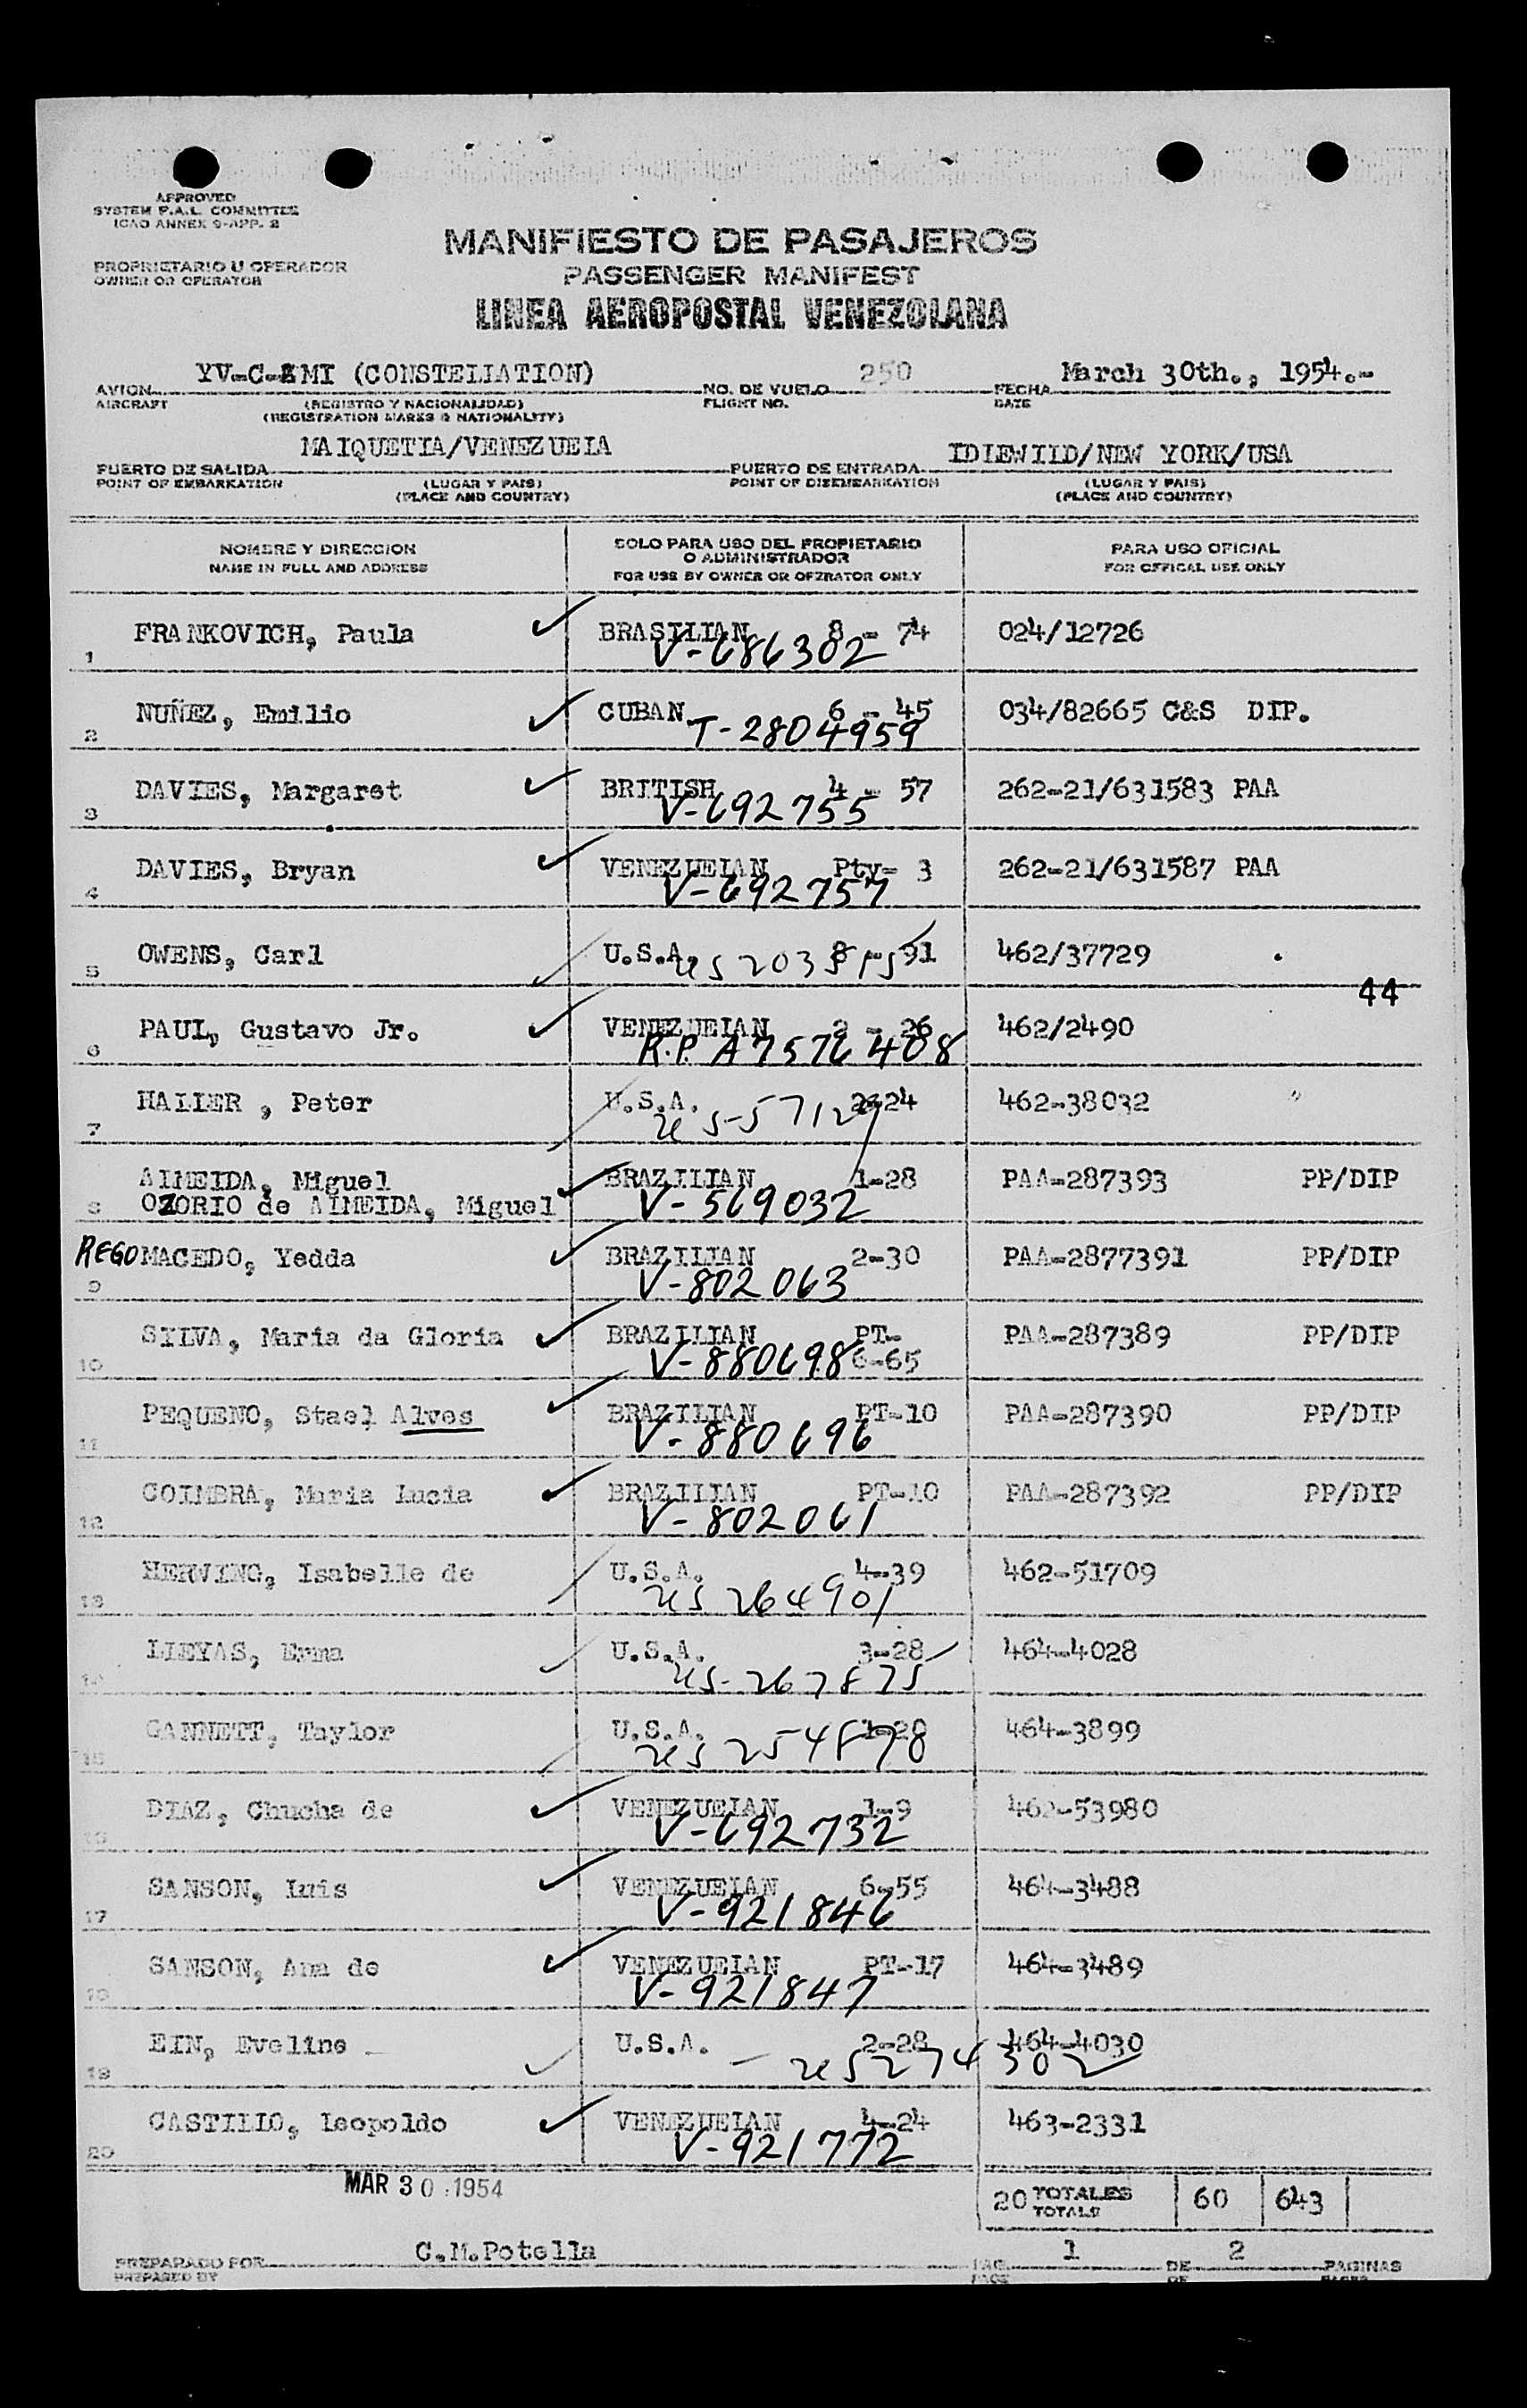 APPROVED
SYSTEM F.A.L. COMMITTEE
ICAO ANNEX 9-APP. 2
MANIFIESTO DE PASAJEROS
PROPRIETARIO U OPERADOR
OWNER OR OPERATOR
PASSENGER MANIFEST
LINEA AEROPOSTAL VENEZOLANA
AVION YV-C-AMI (CONSTELLATION) NO. DE VUELO 250 FECHA March 30th., 1954.-
AIRCRAFT (REGISTRO Y NACIONALIDAD) FLIGHT NO. DATE
(REGISTRATION MARKS & NATIONALITY)
PUERTO DE SALIDA MAIQUETIA/VENEZUELA PUERTO DE ENTRADA IDLEWILD/NEW YORK/USA
POINT OF EMBARKATION (LUGAR Y PAIS) POINT OF DISEMBARKATION (LUGAR Y PAIS)
(PLACE AND COUNTRY) (PLACE AND COUNTRY)
NOMBRE Y DIRECCION SOLO PARA USO DEL PROPIETARIO O ADMINISTRADOR PARA USO OFICIAL
NAME IN FULL AND ADDRESS FOR USE BY OWNER OR OPERATOR ONLY FOR OFFICAL USE ONLY
1 FRANKOVICH, Paula BRASILIAN 8 - 74 024/12726
V-686302
2 NUÑEZ, Emilio CUBAN 6 - 45 034/82665 C&S DIP.
T-2804959
3 DAVIES, Margaret BRITISH 4 - 57 262-21/631583 PAA
V-692755
4 DAVIES, Bryan VENEZUELAN Pty- 3 262-21/631587 PAA
V-692757
5 OWENS, Carl U.S.A. 462/37729
44
6 PAUL, Gustavo Jr. VENEZUELAN 2 - 26 462/2490
R.P. A7576408
7 HALLER , Peter U.S.A. 2-24 462-38032
8 ALMEIDA, Miguel BRAZILIAN 1-28 PAA-287393 PP/DIP
OZORIO de ALMEIDA, Miguel V-569032
REGO MACEDO, Yedda BRAZILIAN 2-30 PAA-2877391 PP/DIP
9 V-802063
SILVA, Maria da Gloria BRAZILIAN PT- PAA-287389 PP/DIP
10 V-880698 6-65
11 PEQUENO, Stael Alves BRAZILIAN PT-10 PAA-287390 PP/DIP
V-880696
12 COIMBRA, Maria Lucia BRAZILIAN PT-10 PAA-287392 PP/DIP
V-802061
13 HERVING, Isabelle de U.S.A. 4-39 462-51709
us 264901
14 LIEYAS, Erma U.S.A. 3-28 464-4028
us-267875
15 GANNETT, Taylor U.S.A. 464-3899
DIAZ, Chucha de VENEZUELAN 1-9 462-53980
V-692732
17 SANSON, Luis VENEZUELAN 6-55 464-3488
V-921846
SANSON, Ana de VENEZUELAN PT-17 464-3489
V-921847
19 EIN, Eveline U.S.A. 2-28 464-4030
us274302
20 CASTILLO, Leopoldo VENEZUELAN 4-24 463-2331
V-921772
MAR 30 1954
20 TOTALES 60 643
TOTALS
PREPARADO POR C.M.Potella PAG. 1 DE 2 PAGINAS
PREPARED BY PAGE OF PAGES